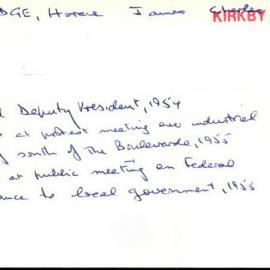 DGE, Horace James Charles
KIRKBY
d Deputy President, 1954
at protest meeting over industrial
south of The Boulevarde, 1955
at public meeting on Federal
ance to local government, 1955